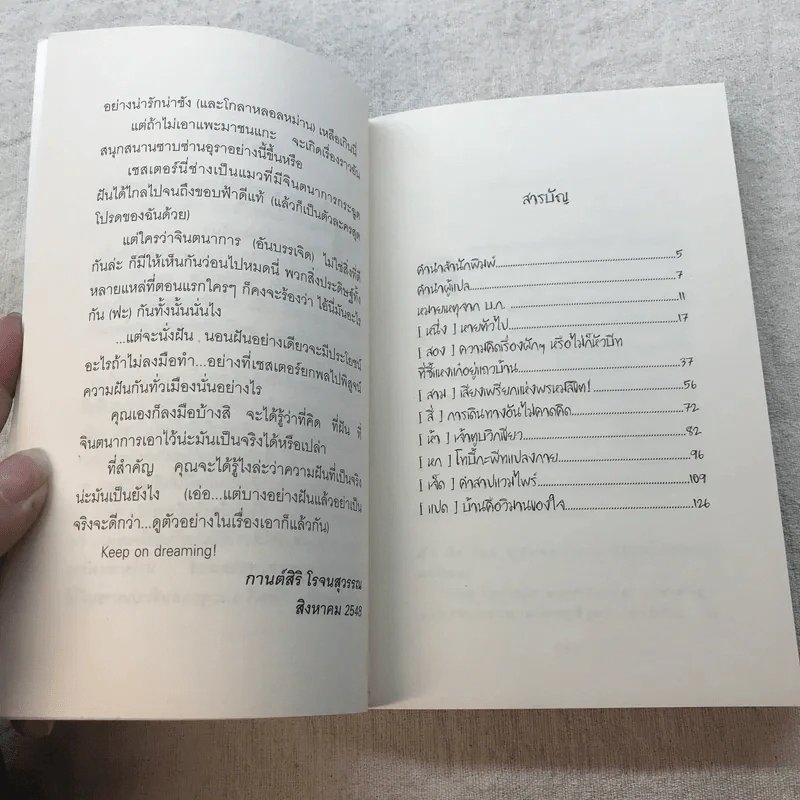 อย่างน่ารักน่าชัง (และโกลาหลอลหม่าน) เหลือเกินนี่
แต่ถ้าไม่เอาแพะมาชนแกะ จะเกิดเรื่องราวอัน
สนุกสนานซาบซ่านอุราอย่างนี้ขึ้นหรือ
เชสเตอร์นี่ช่างเป็นแมวที่มีจินตนาการกระฉูด
ฝันได้ไกลไปจนถึงขอบฟ้าดีแท้ (แล้วก็เป็นตัวละครสุด
โปรดของฉันด้วย)
แต่ใครว่าจินตนาการ (อันบรรเจิด) ไม่ใช่สิ่งที่ดี
กันล่ะ ก็มีให้เห็นกันว่อนไปหมดนี่ พวกสิ่งประดิษฐ์ทั้ง
หลายแหล่ที่ตอนแรกใครๆ ก็คงจะร้องว่า ไอ้นี่มันอะไร
กัน (ฟะ) กันทั้งนั้นนั่นไง
...แต่จะนั่งฝัน นอนฝันอย่างเดียวจะมีประโยชน์
อะไรถ้าไม่ลงมือทำ...อย่างที่เชสเตอร์ยกพลไปพิสูจน์
ความฝันกันทั่วเมืองนั่นอย่างไร
คุณเองก็ลงมือบ้างสิ จะได้รู้ว่าที่คิด ที่ฝัน ที่
จินตนาการเอาไว้น่ะมันเป็นจริงได้หรือเปล่า
ที่สำคัญ คุณจะได้รู้ไงล่ะว่าความฝันที่เป็นจริง
น่ะมันเป็นยังไง (เอ่อ...แต่บางอย่างฝันแล้วอย่าเป็น
จริงจะดีกว่า...ดูตัวอย่างในเรื่องเอาก็แล้วกัน)
Keep on dreaming!
กานต์สิริ โรจนสุวรรณ
สิงหาคม 2548
สารบัญ
คำนำสำนักพิมพ์ 5
คำนำผู้แปล 7
หมายเหตุจาก บ.ก. 11
[ หนึ่ง ] หายตัวไป 17
[ สอง ] ความคิดเรื่องผักๆ หรือไม่ก็หัวบีท
ที่ซี้แหงแก๋อยู่แถวบ้าน 37
[ สาม ] เสียงเพรียกแห่งพรหมลิขิต! 56
[ สี่ ] การเดินทางอันไม่คาดคิด 72
[ ห้า ] เจ้าทูบวิกเขียว 82
[ หก ] โทบี้กะพีทแปลงกาย 96
[ เจ็ด ] คำสาปแวมไพร์ 109
[ แปด ] บ้านคือวิมานของใจ 126